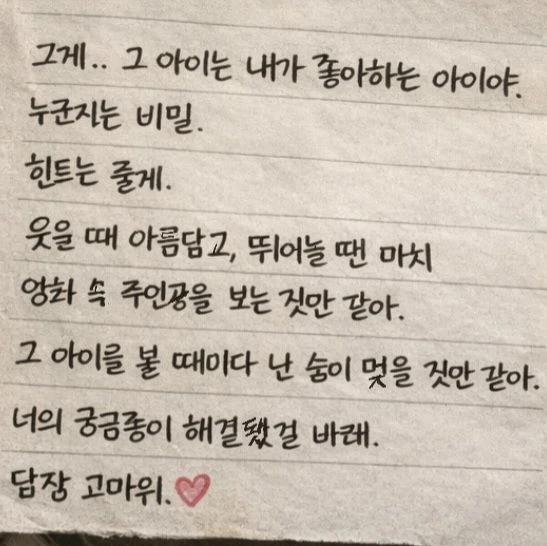 그게.. 그 아이는 내가 좋아하는 아이야.
누군지는 비밀.
힌트는 줄게.
웃을 때 아름답고, 뛰어놀 땐 마치
영화 속 주인공을 보는 것만 같아.
그 아이를 볼 때마다 난 숨이 멎을 것만 같아.
너의 궁금증이 해결됐길 바래.
답장 고마워.